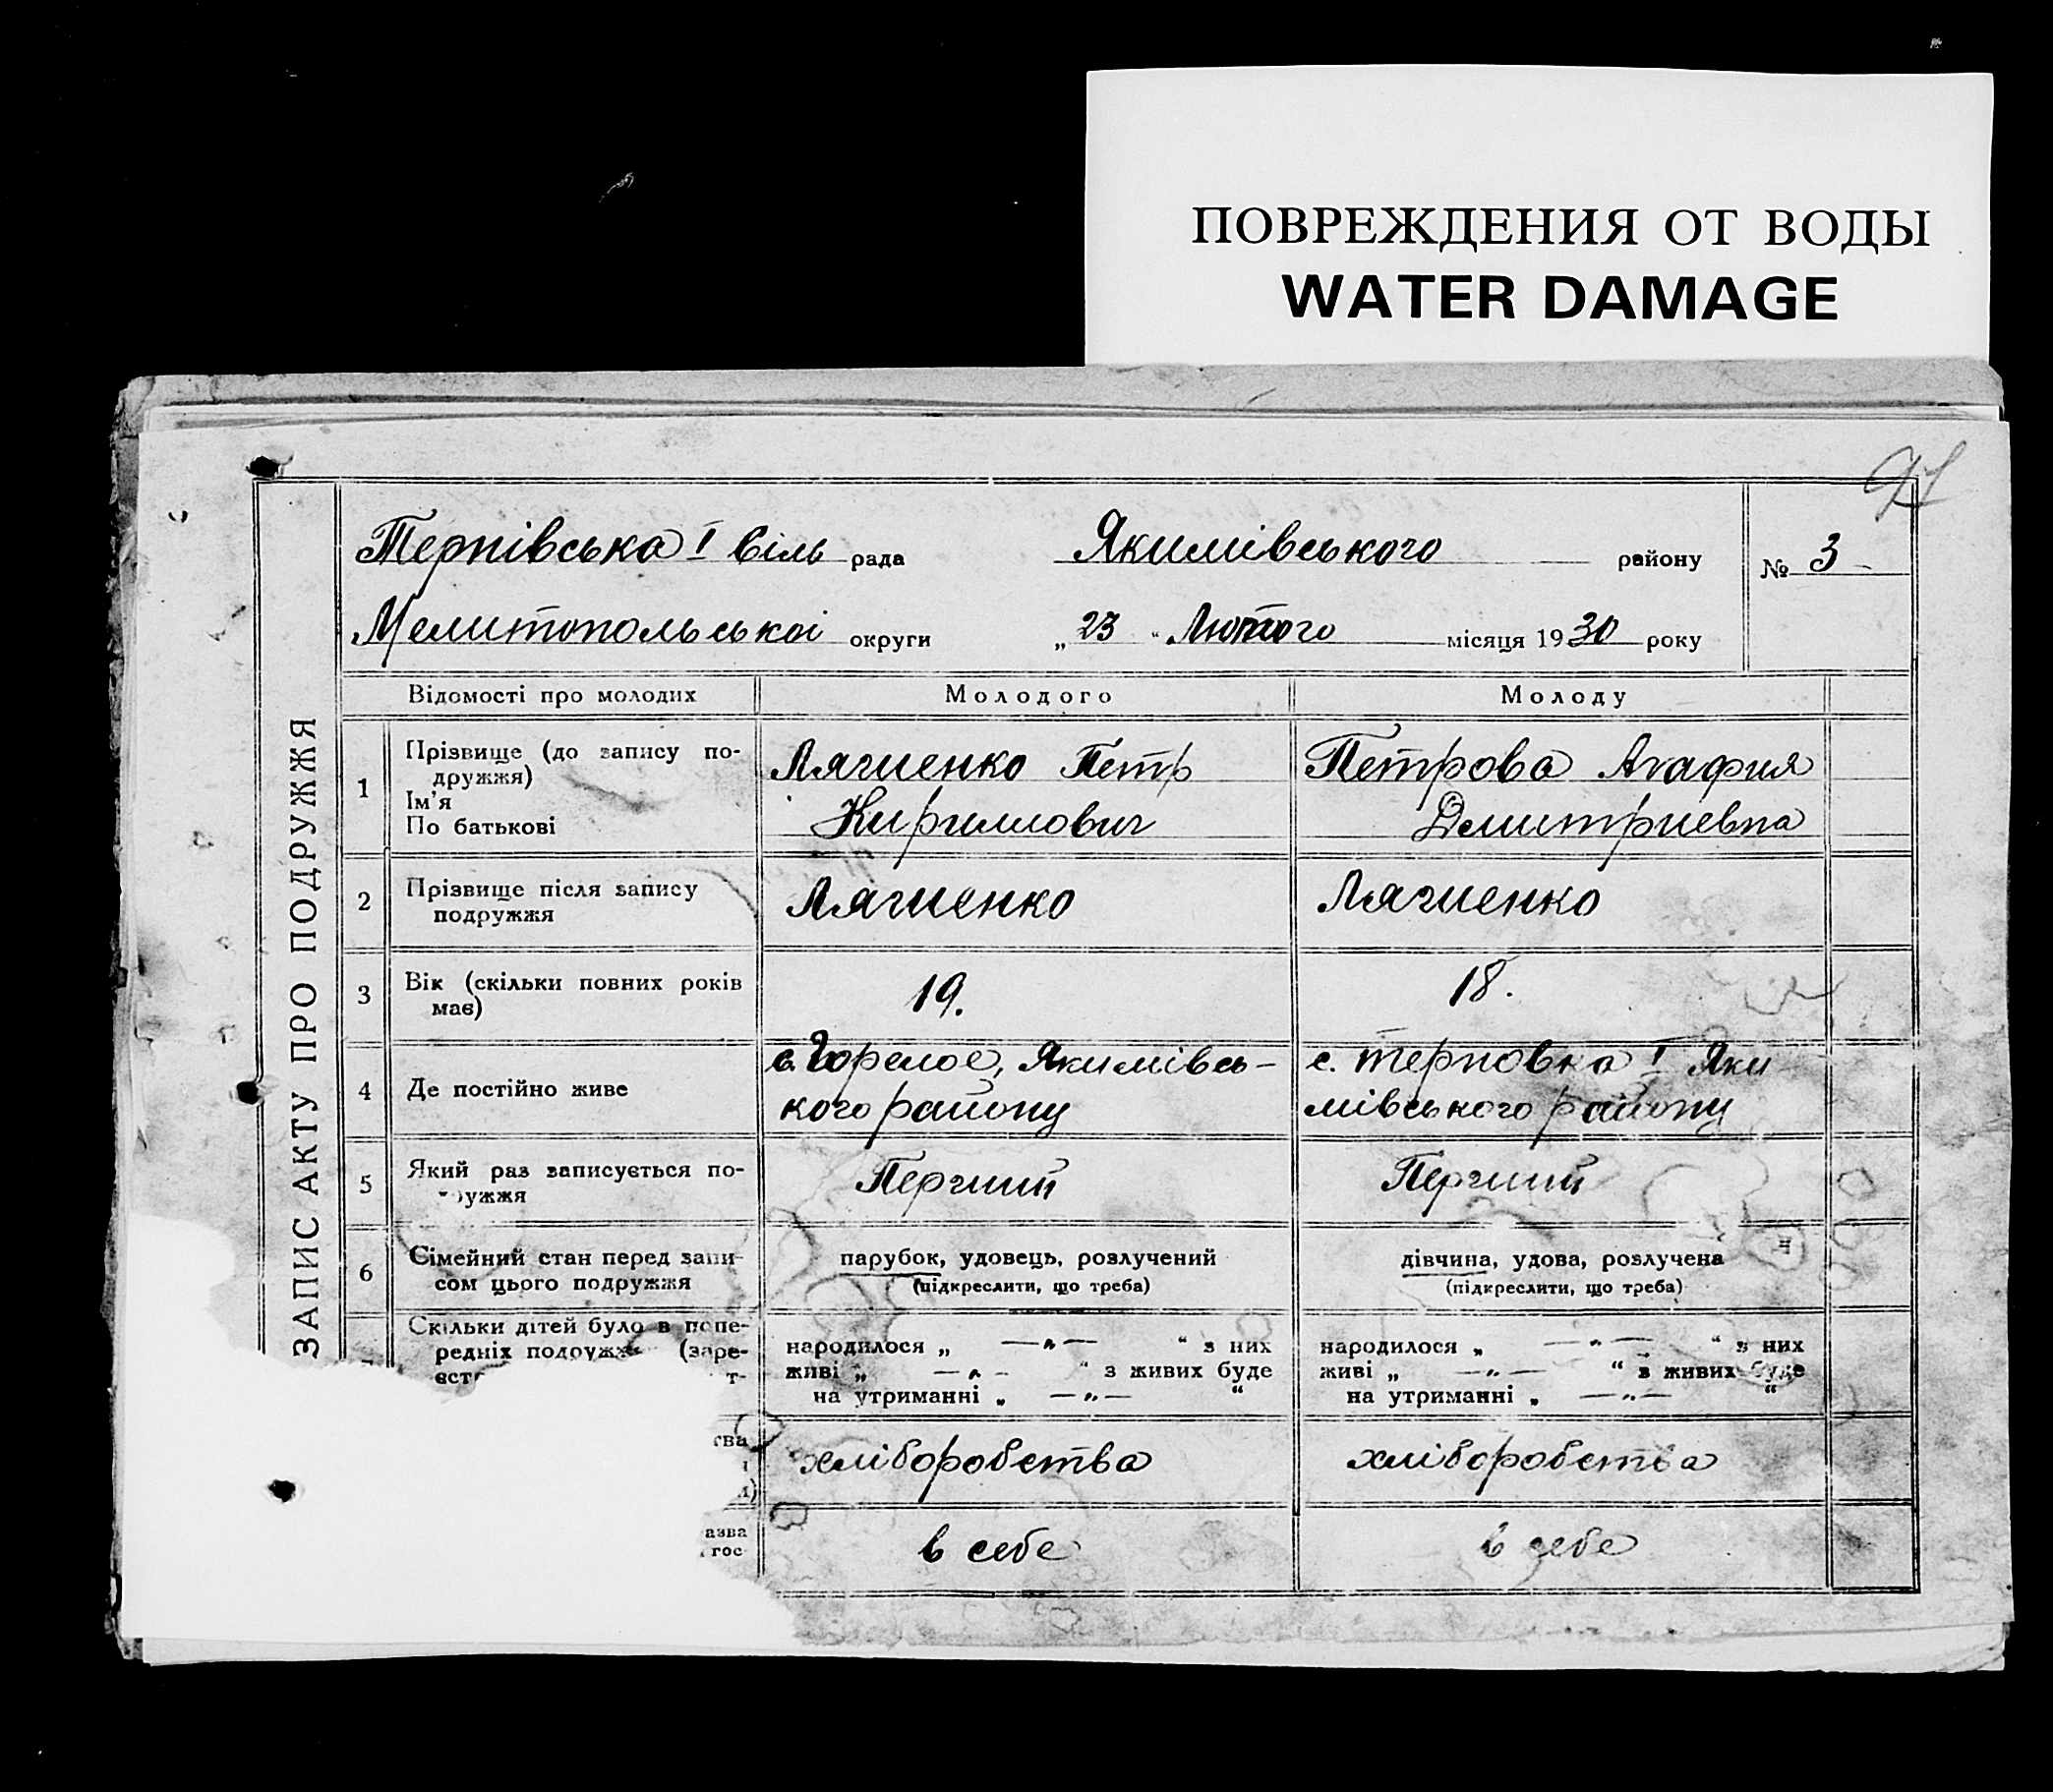 ПОВРЕЖДЕНИЯ ОТ ВОДЫ
WATER DAMAGE
91
Терпівська І Віль рада Якимівського району № 3
Мелитопольської округи „ 23 “ Лютого місяця 1930 року
ЗАПИС АКТУ ПРО ПОДРУЖЖЯ
Відомості про молодих Молодого Молоду
1 Прізвище (до запису по-
дружжя)
Ім'я
По батькові
Лягшенко Петр
Кириллович
Петрова Агафия
Дмитриевна
2 Прізвище після запису
подружжя
Лягшенко
Лягшенко
3 Вік (скільки повних років
має)
19.
18.
4 Де постійно живе
с. Горелое, Якимівсь-
кого району
с. Терповка І Яки
мівського району
5 Який раз записується по-
ружжя
Перший
Перший
6 Сімейний стан перед запи-
сом цього подружжя
парубок, удовець, розлучений
(підкреслити, що треба)
дівчина, удова, розлучена
(підкреслити, що треба)
Скільки дітей було в попе-
редніх подружж (заре-
єст т-
народилося „ —„— “ з них
живі „ —„— “ з живих буде
на утриманні „ —„— “
народилося „ —„— “ з них
живі „ —„— “ з живих буде
на утриманні „ —„— “
тва
хліборобства
хліборобства
азва
гос-
в себе
в себе